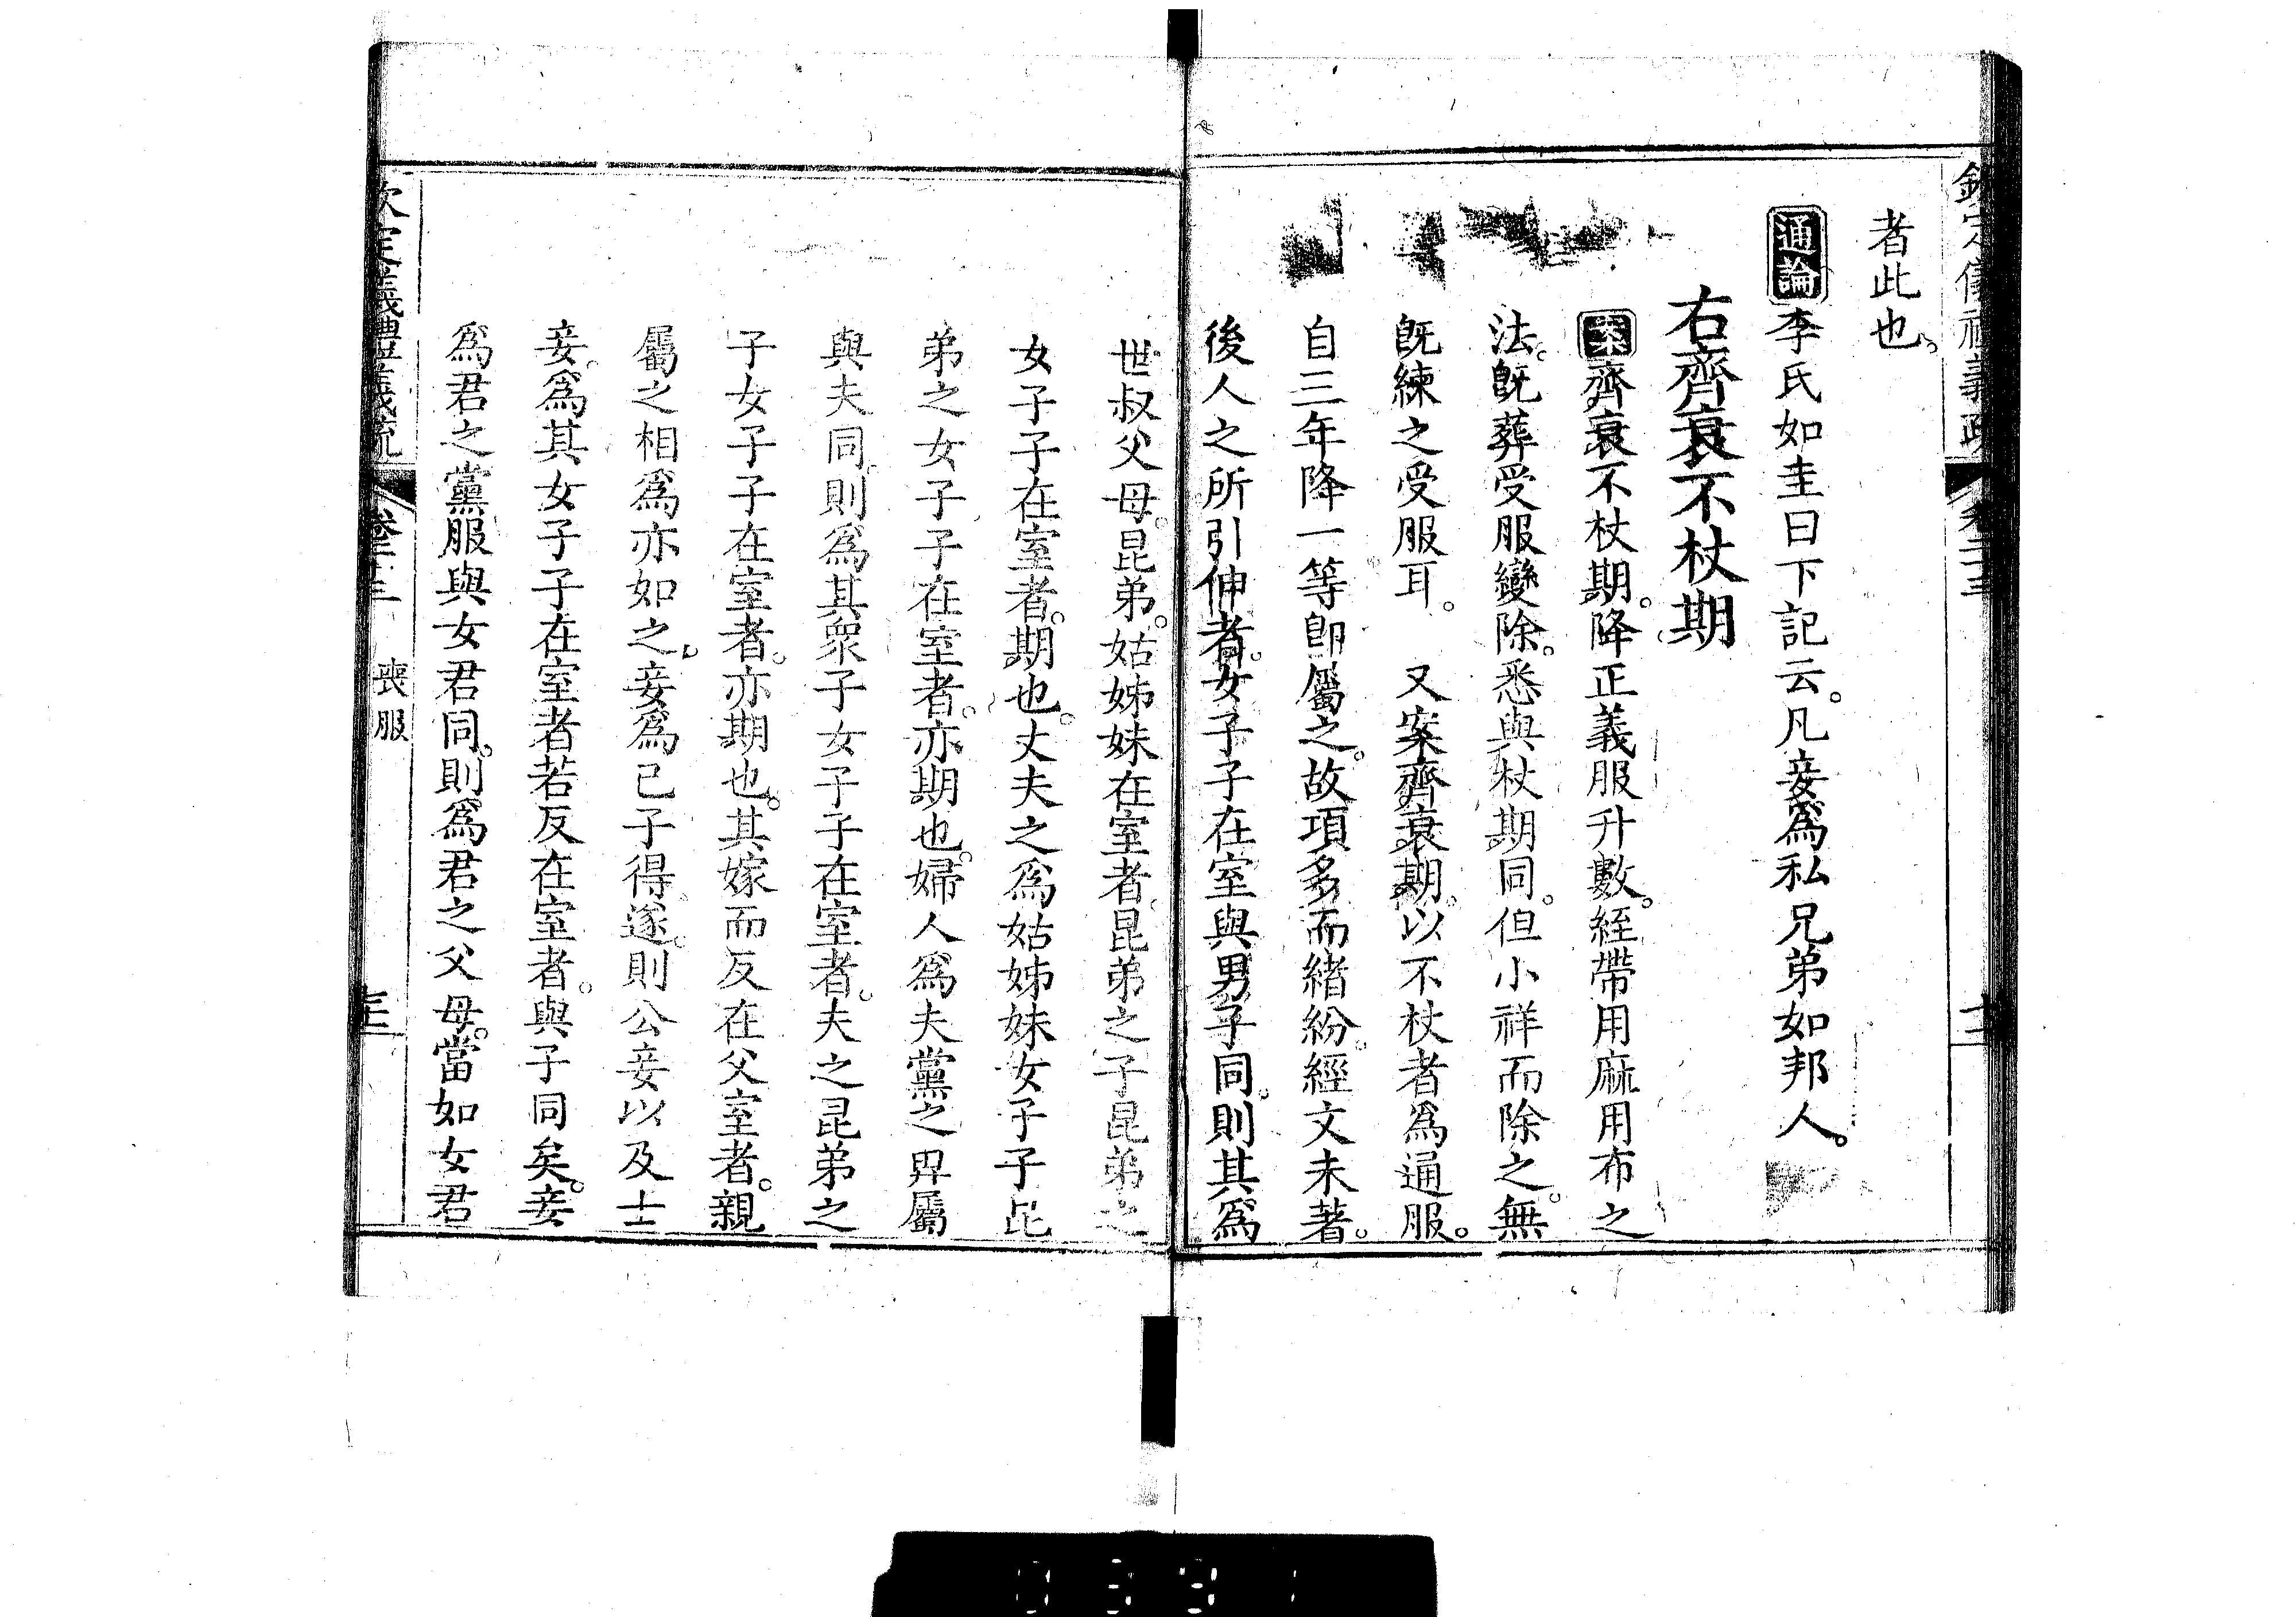 者此也。
通論李氏如圭曰下記云。凡妾爲私兄弟如邦人。
右齊衰不杖期
案齊衰不杖期。降正義服升數。絰帶用麻用布之
法。旣葬受服變除。悉與杖期同。但小祥而除之。無
旣練之受服耳。　又案齊衰期。以不杖者爲通服。
自三年降一等卽屬之。故項多而緖紛。經文未著。
後人之所引伸者。女子子在室與男子同。則其爲
世叔父母。昆弟。姑姊妹在室者。昆弟之子昆弟之
女子子在室者。期也。丈夫之爲姑姊妹女子子昆
弟之女子子在室者。亦期也。婦人爲夫黨之卑屬
與夫同。則爲其衆子女子子在室者。夫之昆弟之
子女子子在室者。亦期也。其嫁而反在父室者。親
屬之相爲亦如之。妾爲己子得遂。則公妾以及士
妾。爲其女子子在室者若反在室者。與子同矣。妾
爲君之黨服與女君同。則爲君之父母。當如女君
欽定儀禮義疏　卷二十三　喪服